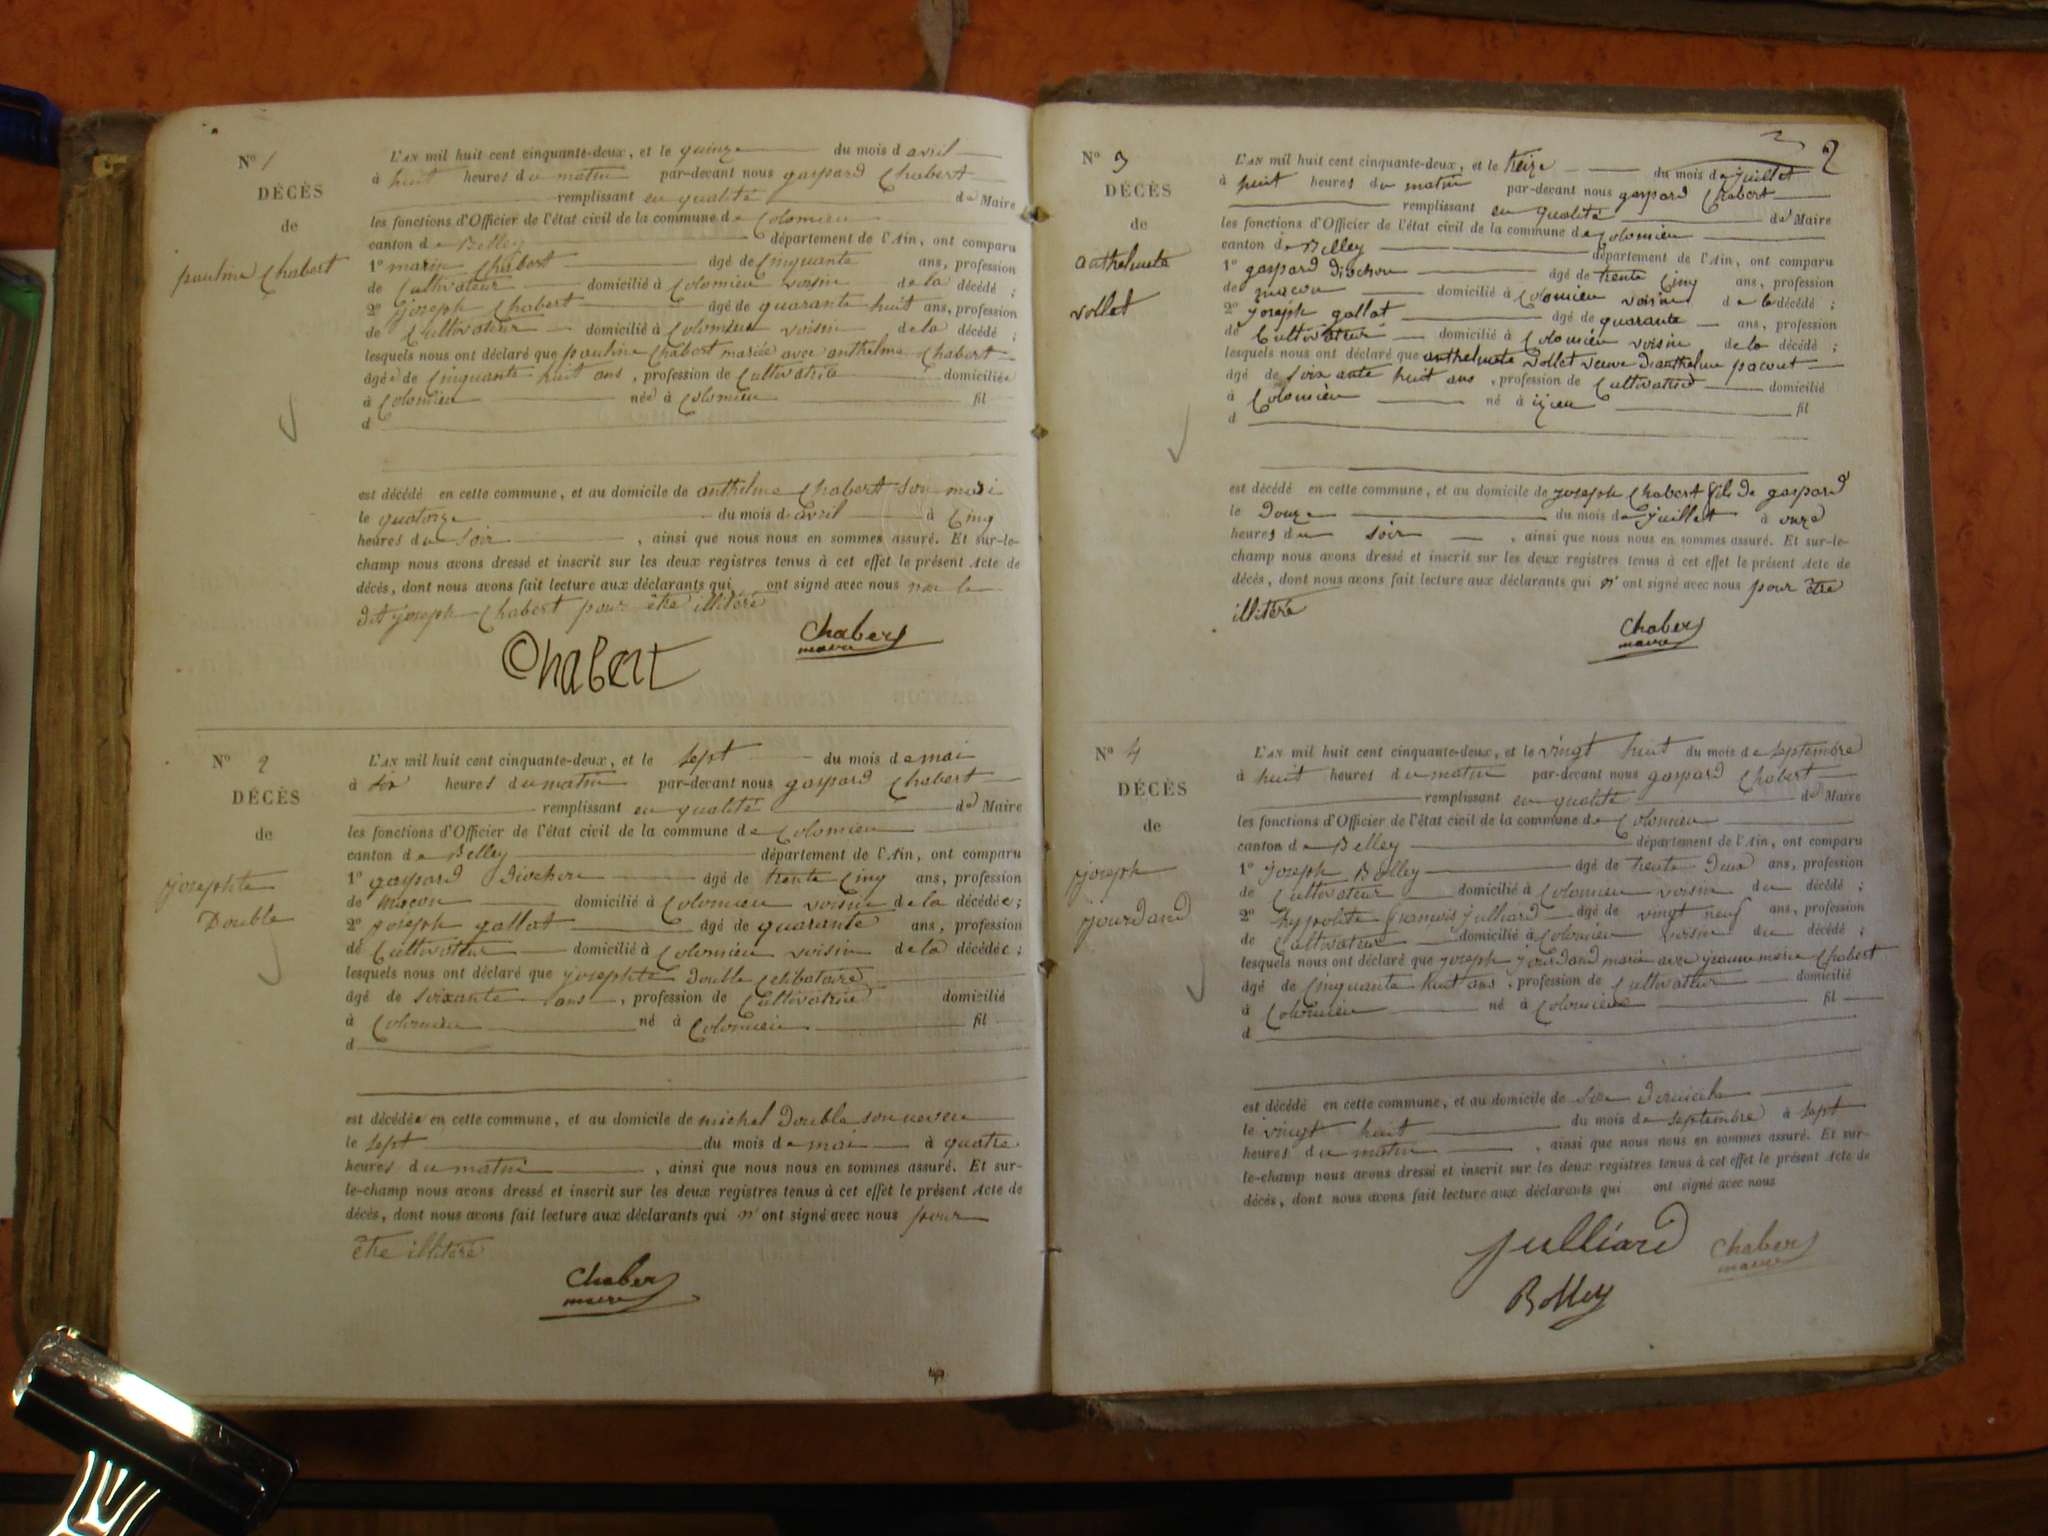 Nº 1
DÉCÈS
de
pauline Chabert
L'AN mil huit cent cinquante-deux, et le quinze du mois d avril
à huit heures du matin par-devant nous gaspard Chabert
remplissant en qualité de Maire
les fonctions d'Officier de l'état civil de la commune de Colomieu
canton de Belley département de l'Ain, ont comparu
1º marin Chabert âgé de Cinquante ans, profession
de Cultivateur domicilié à Colomieu voisin de la décédé ;
2º joseph Chabert âgé de quarante huit ans, profession
de Cultivateur domicilié à Colomieu voisin de la décédé ;
lesquels nous ont déclaré que pauline Chabert mariée avec anthelme Chabert
âgée de Cinquante huit ans, profession de Cultivatrice domiciliée
à Colomieu née à Colomieu fil
d
est décédé en cette commune, et au domicile de anthelme Chabert son mari
le quatorze du mois d avril à Cinq
heures du soir, ainsi que nous nous en sommes assuré. Et sur-le-
champ nous avons dressé et inscrit sur les deux registres tenus à cet effet le présent Acte de
décès, dont nous avons fait lecture aux déclarants qui ont signé avec nous non le
dit joseph Chabert pour être illitéré
Chabert
Chabert
maire
Nº 2
DÉCÈS
de
josephte
Double
L'AN mil huit cent cinquante-deux, et le sept du mois de mai
à six heures du matin par-devant nous gaspard Chabert
remplissant en qualité de Maire
les fonctions d'Officier de l'état civil de la commune de Colomieu
canton de Belley département de l'Ain, ont comparu
1º gaspard Diochon âgé de trente Cinq ans, profession
de maçon domicilié à Colomieu voisin de la décédée ;
2º joseph gallot âgé de quarante ans, profession
de Cultivateur domicilié à Colomieu voisin de la décédée ;
lesquels nous ont déclaré que josephte Double Célibataire
âgé de soixante ans, profession de Cultivatrice domicilié
à Colomieu né à Colomieu fil
d
est décédée en cette commune, et au domicile de michel Double son neveu
le sept du mois de mai à quatre
heures du matin, ainsi que nous nous en sommes assuré. Et sur-
le-champ nous avons dressé et inscrit sur les deux registres tenus à cet effet le présent Acte de
décès, dont nous avons fait lecture aux déclarants qui n'ont signé avec nous pour
être illitéré
Chabert
maire
2
Nº 3
DÉCÈS
de
anthelmete
vollet
L'AN mil huit cent cinquante-deux, et le treize du mois de juillet
à huit heures du matin par-devant nous gaspard Chabert
remplissant en qualité de Maire
les fonctions d'Officier de l'état civil de la commune de Colomieu
canton de Belley département de l'Ain, ont comparu
1º gaspard Diochon âgé de trente Cinq ans, profession
de maçon domicilié à Colomieu voisin de la décédé ;
2º joseph gallot âgé de quarante ans, profession
de Cultivateur domicilié à Colomieu voisin de la décédé ;
lesquels nous ont déclaré que anthelmete vollet veuve d'anthelme pacout
âgé de soixante huit ans, profession de Cultivatrice domicilié
à Colomieu né à ijieu fil
d
est décédé en cette commune, et au domicile de joseph Chabert fils de gaspard
le douze du mois de juillet à onze
heures du soir, ainsi que nous nous en sommes assuré. Et sur-le-
champ nous avons dressé et inscrit sur les deux registres tenus à cet effet le présent Acte de
décès, dont nous avons fait lecture aux déclarants qui n'ont signé avec nous pour être
illitéré
Chabert
maire
Nº 4
DÉCÈS
de
joseph
jourdand
L'AN mil huit cent cinquante-deux, et le vingt huit du mois de septembre
à huit heures du matin par-devant nous gaspard Chabert
remplissant en qualité de Maire
les fonctions d'Officier de l'état civil de la commune de Colomieu
canton de Belley département de l'Ain, ont comparu
1º joseph Bolley âgé de trente Deux ans, profession
de Cultivateur domicilié à Colomieu voisin du décédé ;
2º hypolite françois julliard âgé de vingt neuf ans, profession
de Cultivateur domicilié à Colomieu voisin du décédé ;
lesquels nous ont déclaré que joseph jourdand marié avec jeanne marie Chabert
âgé de Cinquante huit ans, profession de Cultivateur domicilié
à Colomieu né à Colomieu fil
d
est décédé en cette commune, et au domicile de son Domicile
le vingt huit du mois de septembre à sept
heures du matin, ainsi que nous nous en sommes assuré. Et sur-
le-champ nous avons dressé et inscrit sur les deux registres tenus à cet effet le présent Acte de
décès, dont nous avons fait lecture aux déclarants qui ont signé avec nous
julliard
Chabert
maire
Bolley